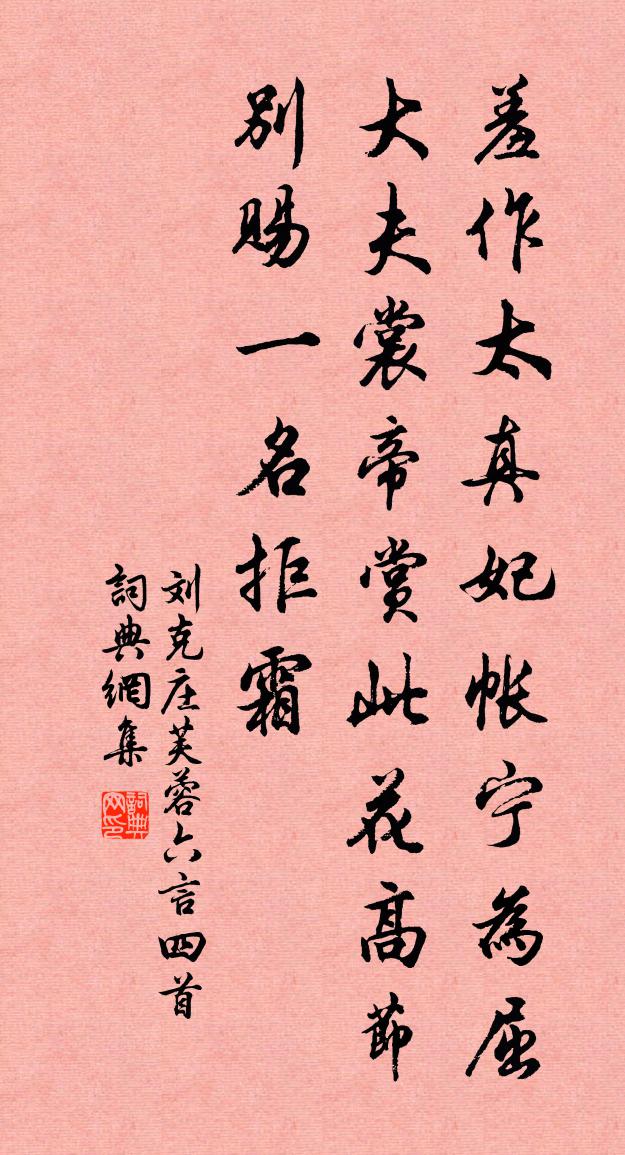 羞作太真妃帐宁為屈
大夫裳帝赏此花高節
别赐一名拒霜
刘克庄芙蓉六言四首
詞典網集
詞典网印